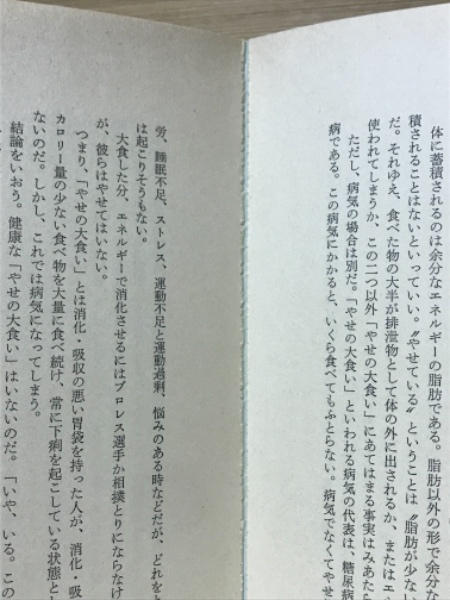 体に蓄積されるのは余分なエネルギーの脂肪である。脂肪以外の形で余分な
積されることはないといっていい。〝やせている〟ということは〝脂肪が少ない
だ。それゆえ、食べた物の大半が排泄物として体の外に出されるか、またはエ
使われてしまうか、この二つ以外「やせの大食い」にあてはまる事実はみあたら
ただし、病気の場合は別だ。「やせの大食い」といわれる病気の代表は、糖尿病
病である。この病気にかかると、いくら食べてもふとらない。病気でなくてやせ
労、睡眠不足、ストレス、運動不足と運動過剰、悩みのある時などだが、どれを
は起こりそうもない。
大食した分、エネルギーで消化させるにはプロレス選手か相撲とりにならなけ
が、彼らはやせてはいない。
つまり、「やせの大食い」とは消化・吸収の悪い胃袋を持った人が、消化・吸
カロリー量の少ない食べ物を大量に食べ続け、常に下痢を起こしている状態と
ないのだ。しかし、これでは病気になってしまう。
結論をいおう。健康な「やせの大食い」はいないのだ。「いや、いる。この